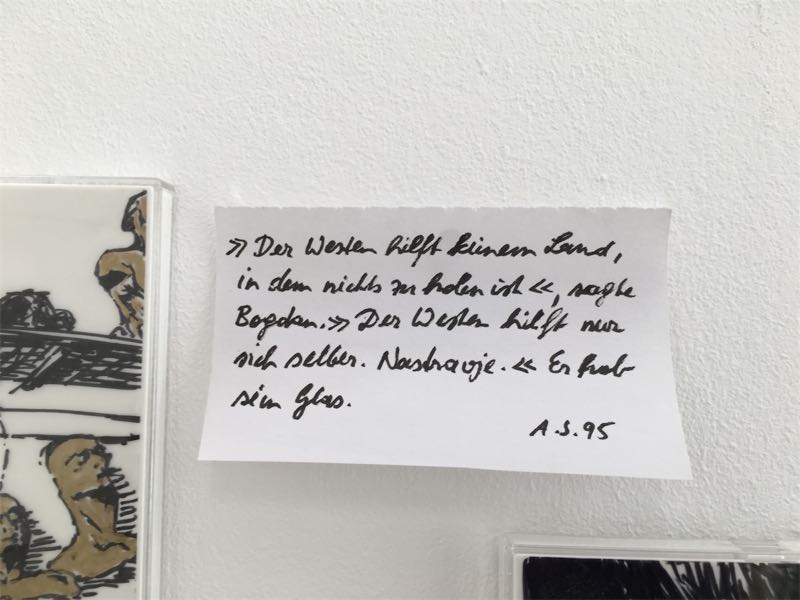 »Der Westen hilft keinem Land,
in dem nichts zu holen ist«, sagte
Bogdan.» Der Westen hilft nur
sich selber. Nastravje.« Er hob
sein Glas.
A.S.95